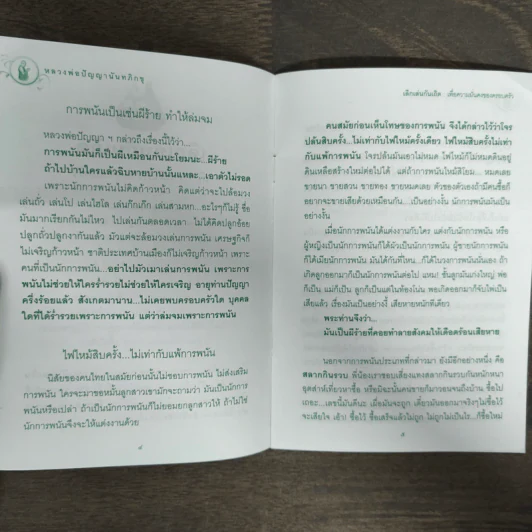 หลวงพ่อปัญญานันทภิกขุ
การพนันเป็นเช่นผีร้าย ทำให้ล่มจม
หลวงพ่อปัญญา ฯ กล่าวถึงเรื่องนี้ไว้ว่า...
การพนันมันก็เป็นผีเหมือนกันนะโยมนะ...ผีร้าย
ถ้าไปบ้านใครแล้วฉิบหายบ้านนั้นแหละ...เอาตัวไม่รอด
เพราะนักการพนันไม่คิดก้าวหน้า คิดแต่ว่าจะไปล้อมวง
เล่นถั่ว เล่นโป เล่นไฮโล เล่นกั๊กเก๊ก เล่นสามหก...อะไรๆก็ไม่รู้ ชื่อ
มันมากเรียกกันไม่ไหว ไปเล่นกันตลอดเวลา ไม่ได้คิดปลูกอ้อย
ปลูกถั่วปลูกงากันแล้ว มัวแต่จะล้อมวงเล่นการพนัน เศรษฐกิจก็
ไม่เจริญก้าวหน้า ชาติประเทศบ้านเมืองก็ไม่เจริญก้าวหน้า เพราะ
คนที่เป็นนักการพนัน...อย่าไปมัวเมาเล่นการพนัน เพราะการ
พนันไม่ช่วยให้ใครร่ำรวยไม่ช่วยให้ใครเจริญ อายุท่านปัญญา
ครึ่งร้อยแล้ว สังเกตมานาน...ไม่เคยพบครอบครัวใด บุคคล
ใดที่ได้ร่ำรวยเพราะการพนัน แต่ว่าล่มจมเพราะการพนัน
ไฟไหม้สิบครั้ง...ไม่เท่ากับแพ้การพนัน
นิสัยของคนไทยในสมัยก่อนนั้นไม่ชอบการพนัน ไม่ส่งเสริม
การพนัน ใครจะมาขอหมั้นลูกสาวเขามักจะถามว่า มันเป็นนักการ
พนันหรือเปล่า ถ้าเป็นนักการพนันก็ไม่ยอมยกลูกสาวให้ ถ้าไม่ใช่
นักการพนันจึงจะให้แต่งงานด้วย
๔
เลิกเล่นกันเถิด เพื่อความมั่นคงของครอบครัว
คนสมัยก่อนเห็นโทษของการพนัน จึงได้กล่าวไว้ว่าโจร
ปล้นสิบครั้ง...ไม่เท่ากับไฟไหม้ครั้งเดียว ไฟไหม้สิบครั้งไม่เท่า
กับแพ้การพนัน โจรปล้นมันเอาไม่หมด ไฟไหม้ก็ไม่หมดดินอยู่
ดินเหลือสร้างใหม่ต่อไปได้ แต่ถ้าการพนันไหม้สิโยม... หมดเลย
ขายนา ขายสวน ขายทอง ขายหมดเลย ตัวของตัวเองถ้ามีคนซื้อก็
อยากจะขายเสียด้วยเหมือนกัน...เป็นอย่างงั้น นักการพนันมันเป็น
อย่างงั้น
เมื่อนักการพนันได้แต่งงานกับใคร แต่งกับนักการพนัน หรือ
ผู้หญิงเป็นนักการพนันก็ได้ผัวเป็นนักการพนัน ผู้ชายนักการพนัน
ก็ได้เมียนักการพนัน มันได้กันที่ไหน...ก็ได้ในวงการพนันนั่นเอง ถ้า
เกิดลูกออกมาก็เป็นนักการพนันต่อไป แหม! ชั้นลูกมันเก่งใหญ่ พ่อ
ก็เป็น แม่ก็เป็น ลูกก็เป็นแต่ในท้องโน่น พอเกิดออกมาก็จับไพ่เป็น
เสียแล้ว เรื่องมันเป็นอย่างนี้ เสียหายหนักทีเดียว
พระท่านจึงว่า...
มันเป็นผีร้ายที่คอยทำลายสังคมให้เดือดร้อนเสียหาย
นอกจากการพนันประเภทที่กล่าวมา ยังมีอีกอย่างหนึ่ง คือ
สลากกินรวบ พี่น้องเราชอบเสี่ยงแทงสลากกินรวบกันหนักหนา
อุตส่าห์เที่ยวหาซื้อ หรือมีฉะนั้นคนขายก็มาวอนจนถึงบ้าน ซื้อไป
เถอะ...เลขนี้มันดีนะ เผื่อมันจะถูก เดี๋ยวมันออกมาจริงๆไม่ซื้อไว้
จะเสียใจ เอ้า! ซื้อไว้ ซื้อเสร็จแล้วไม่ถูก ไม่ถูกไม่เป็นไร...ก็ซื้อใหม่
๕